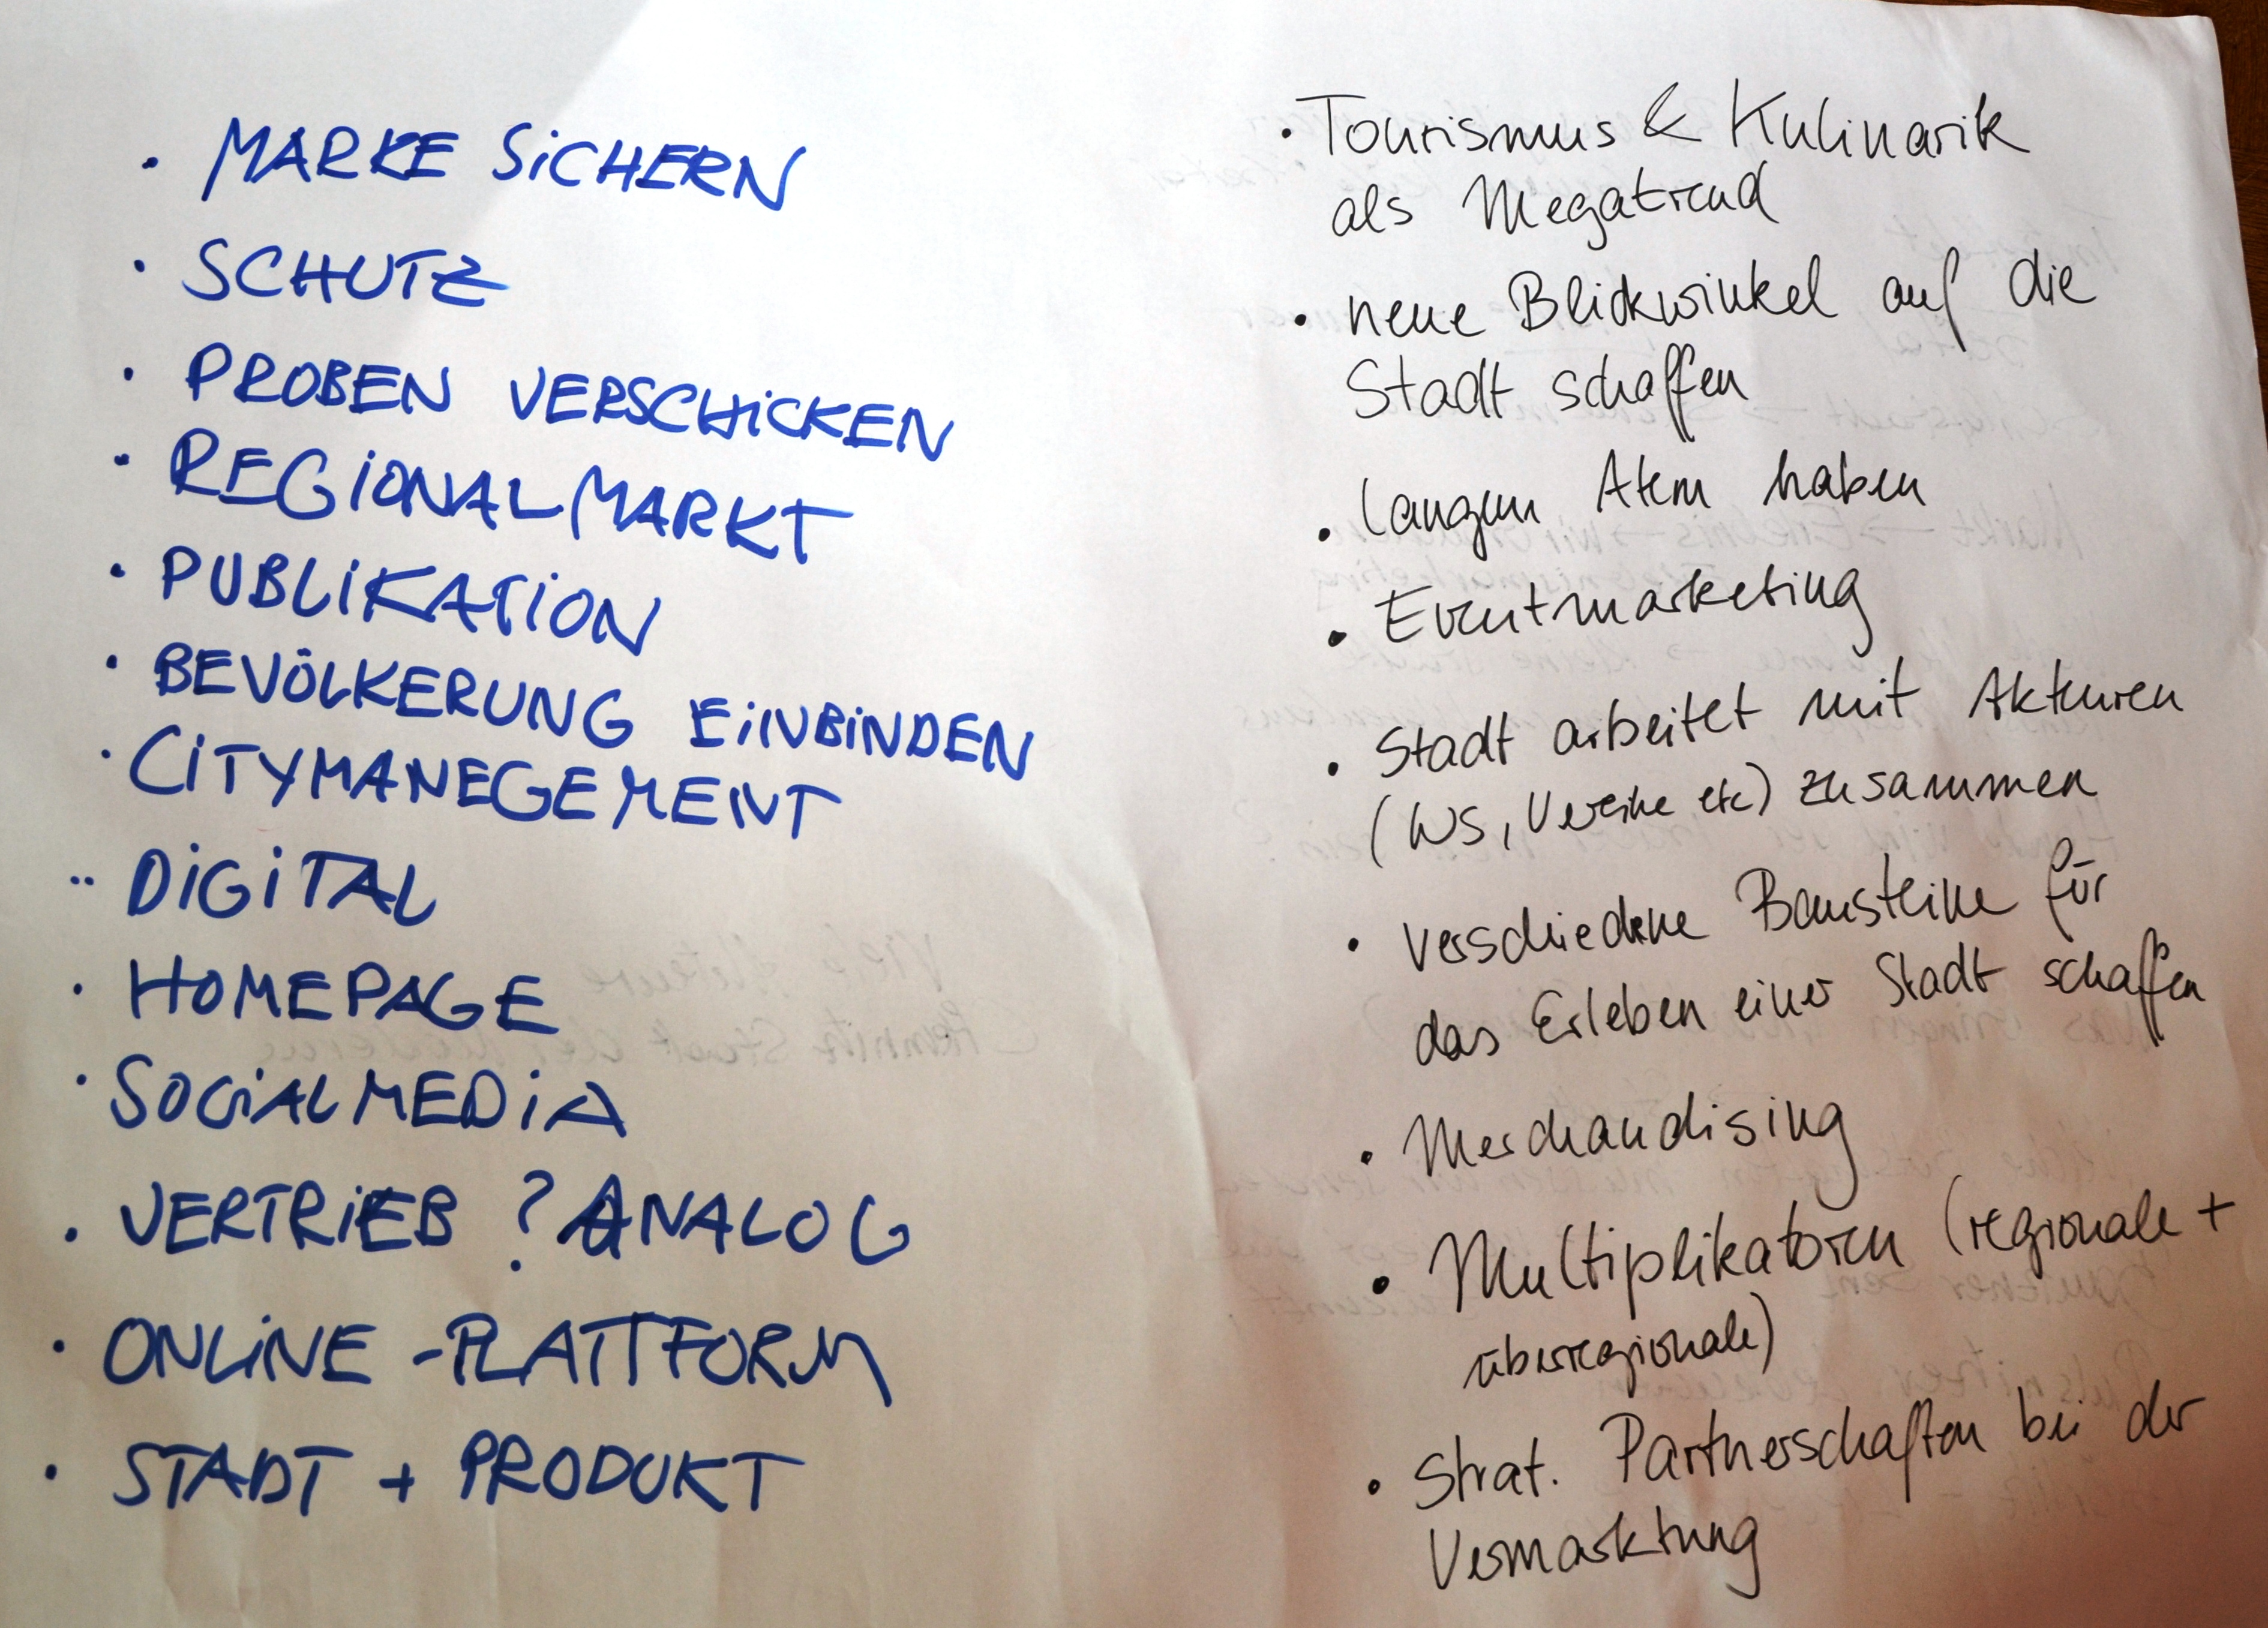 • MARKE SICHERN
• SCHUTZ
• PROBEN VERSCHICKEN
• REGIONALMARKT
• PUBLIKATION
• BEVÖLKERUNG EINBINDEN
• CITYMANEGEMENT
•• DIGITAL
• HOMEPAGE
• SOCIALMEDIA
• VERTRIEB ? ANALOG
• ONLINE - PLATTFORM
• STADT + PRODUKT
• Tourismus & Kulinarik
als Megatrend
• neue Blickwinkel auf die
Stadt schaffen
• langen Atem haben
• Eventmarketing
• Stadt arbeitet mit Akteuren
(WS, Vereine etc) zusammen
• verschiedene Bausteine für
das Erleben einer Stadt schaffen
• Merchandising
• Multiplikatoren (regionale +
überregionale)
• Strat. Partnerschaften bei der
Vermarktung